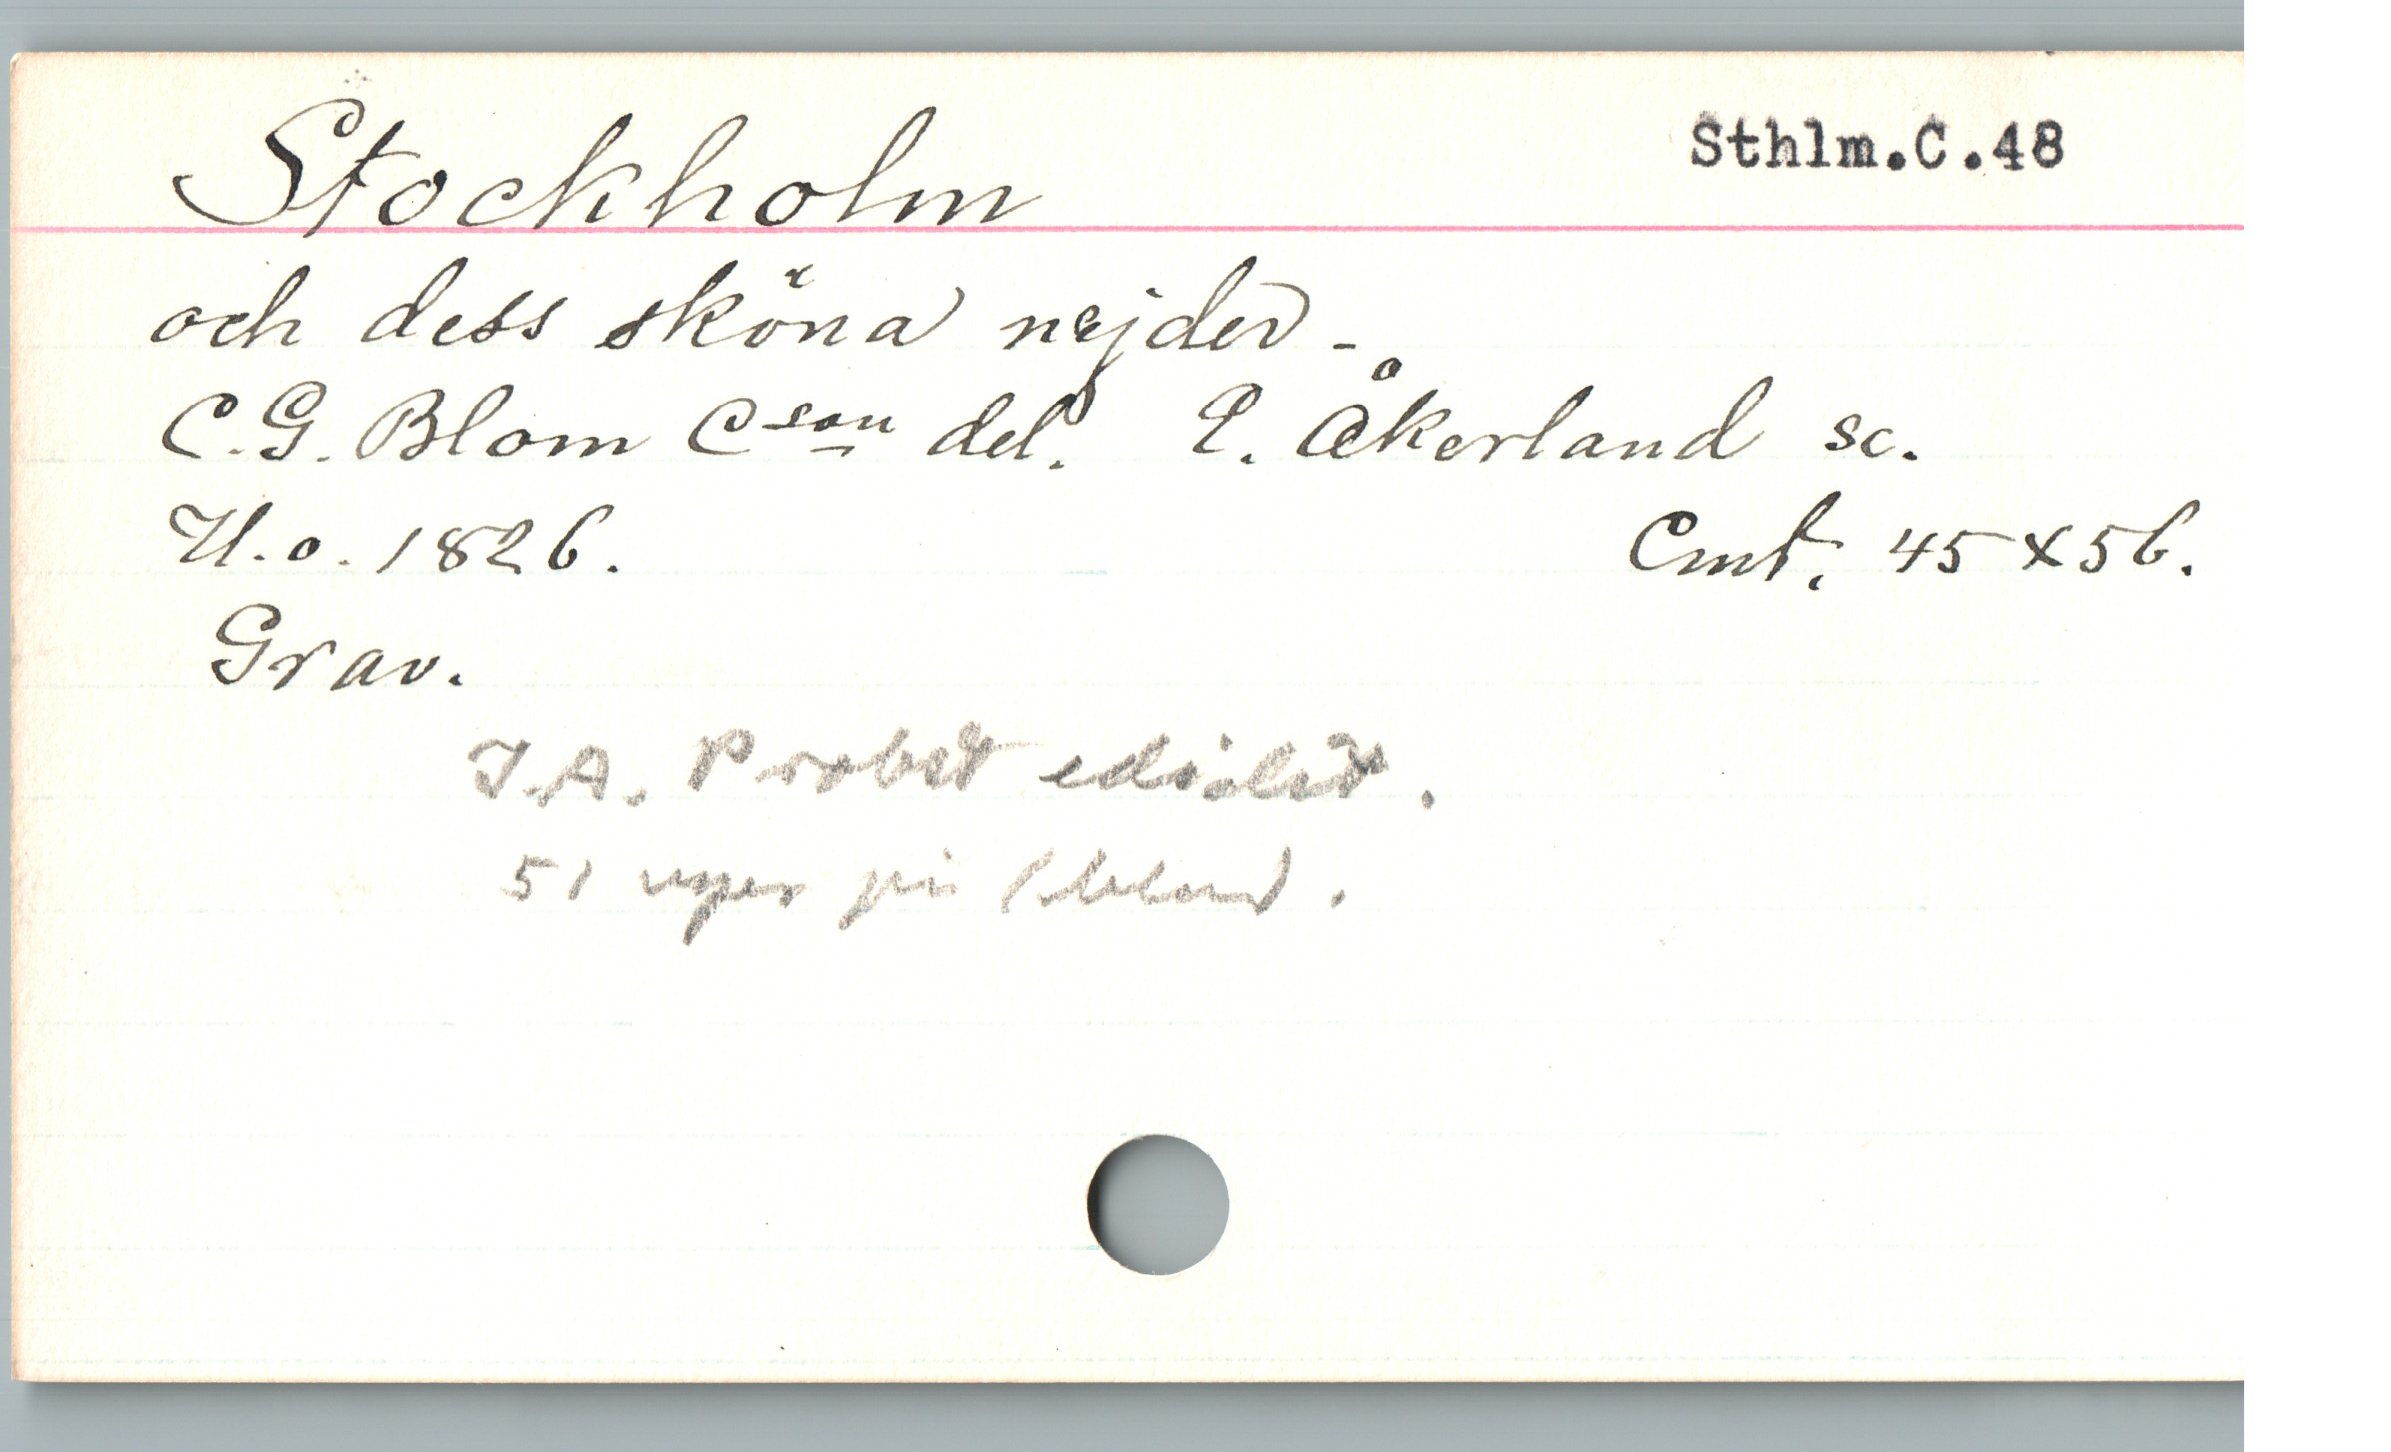 Stockholm Sthlm.C.48
och dess sköna nejder -
C. G. Blom C-son del. E. Åkerland sc.
U. o. 1826. Cmt. 45 x 56.
Grav.
J. A. Probst
51 vyer på